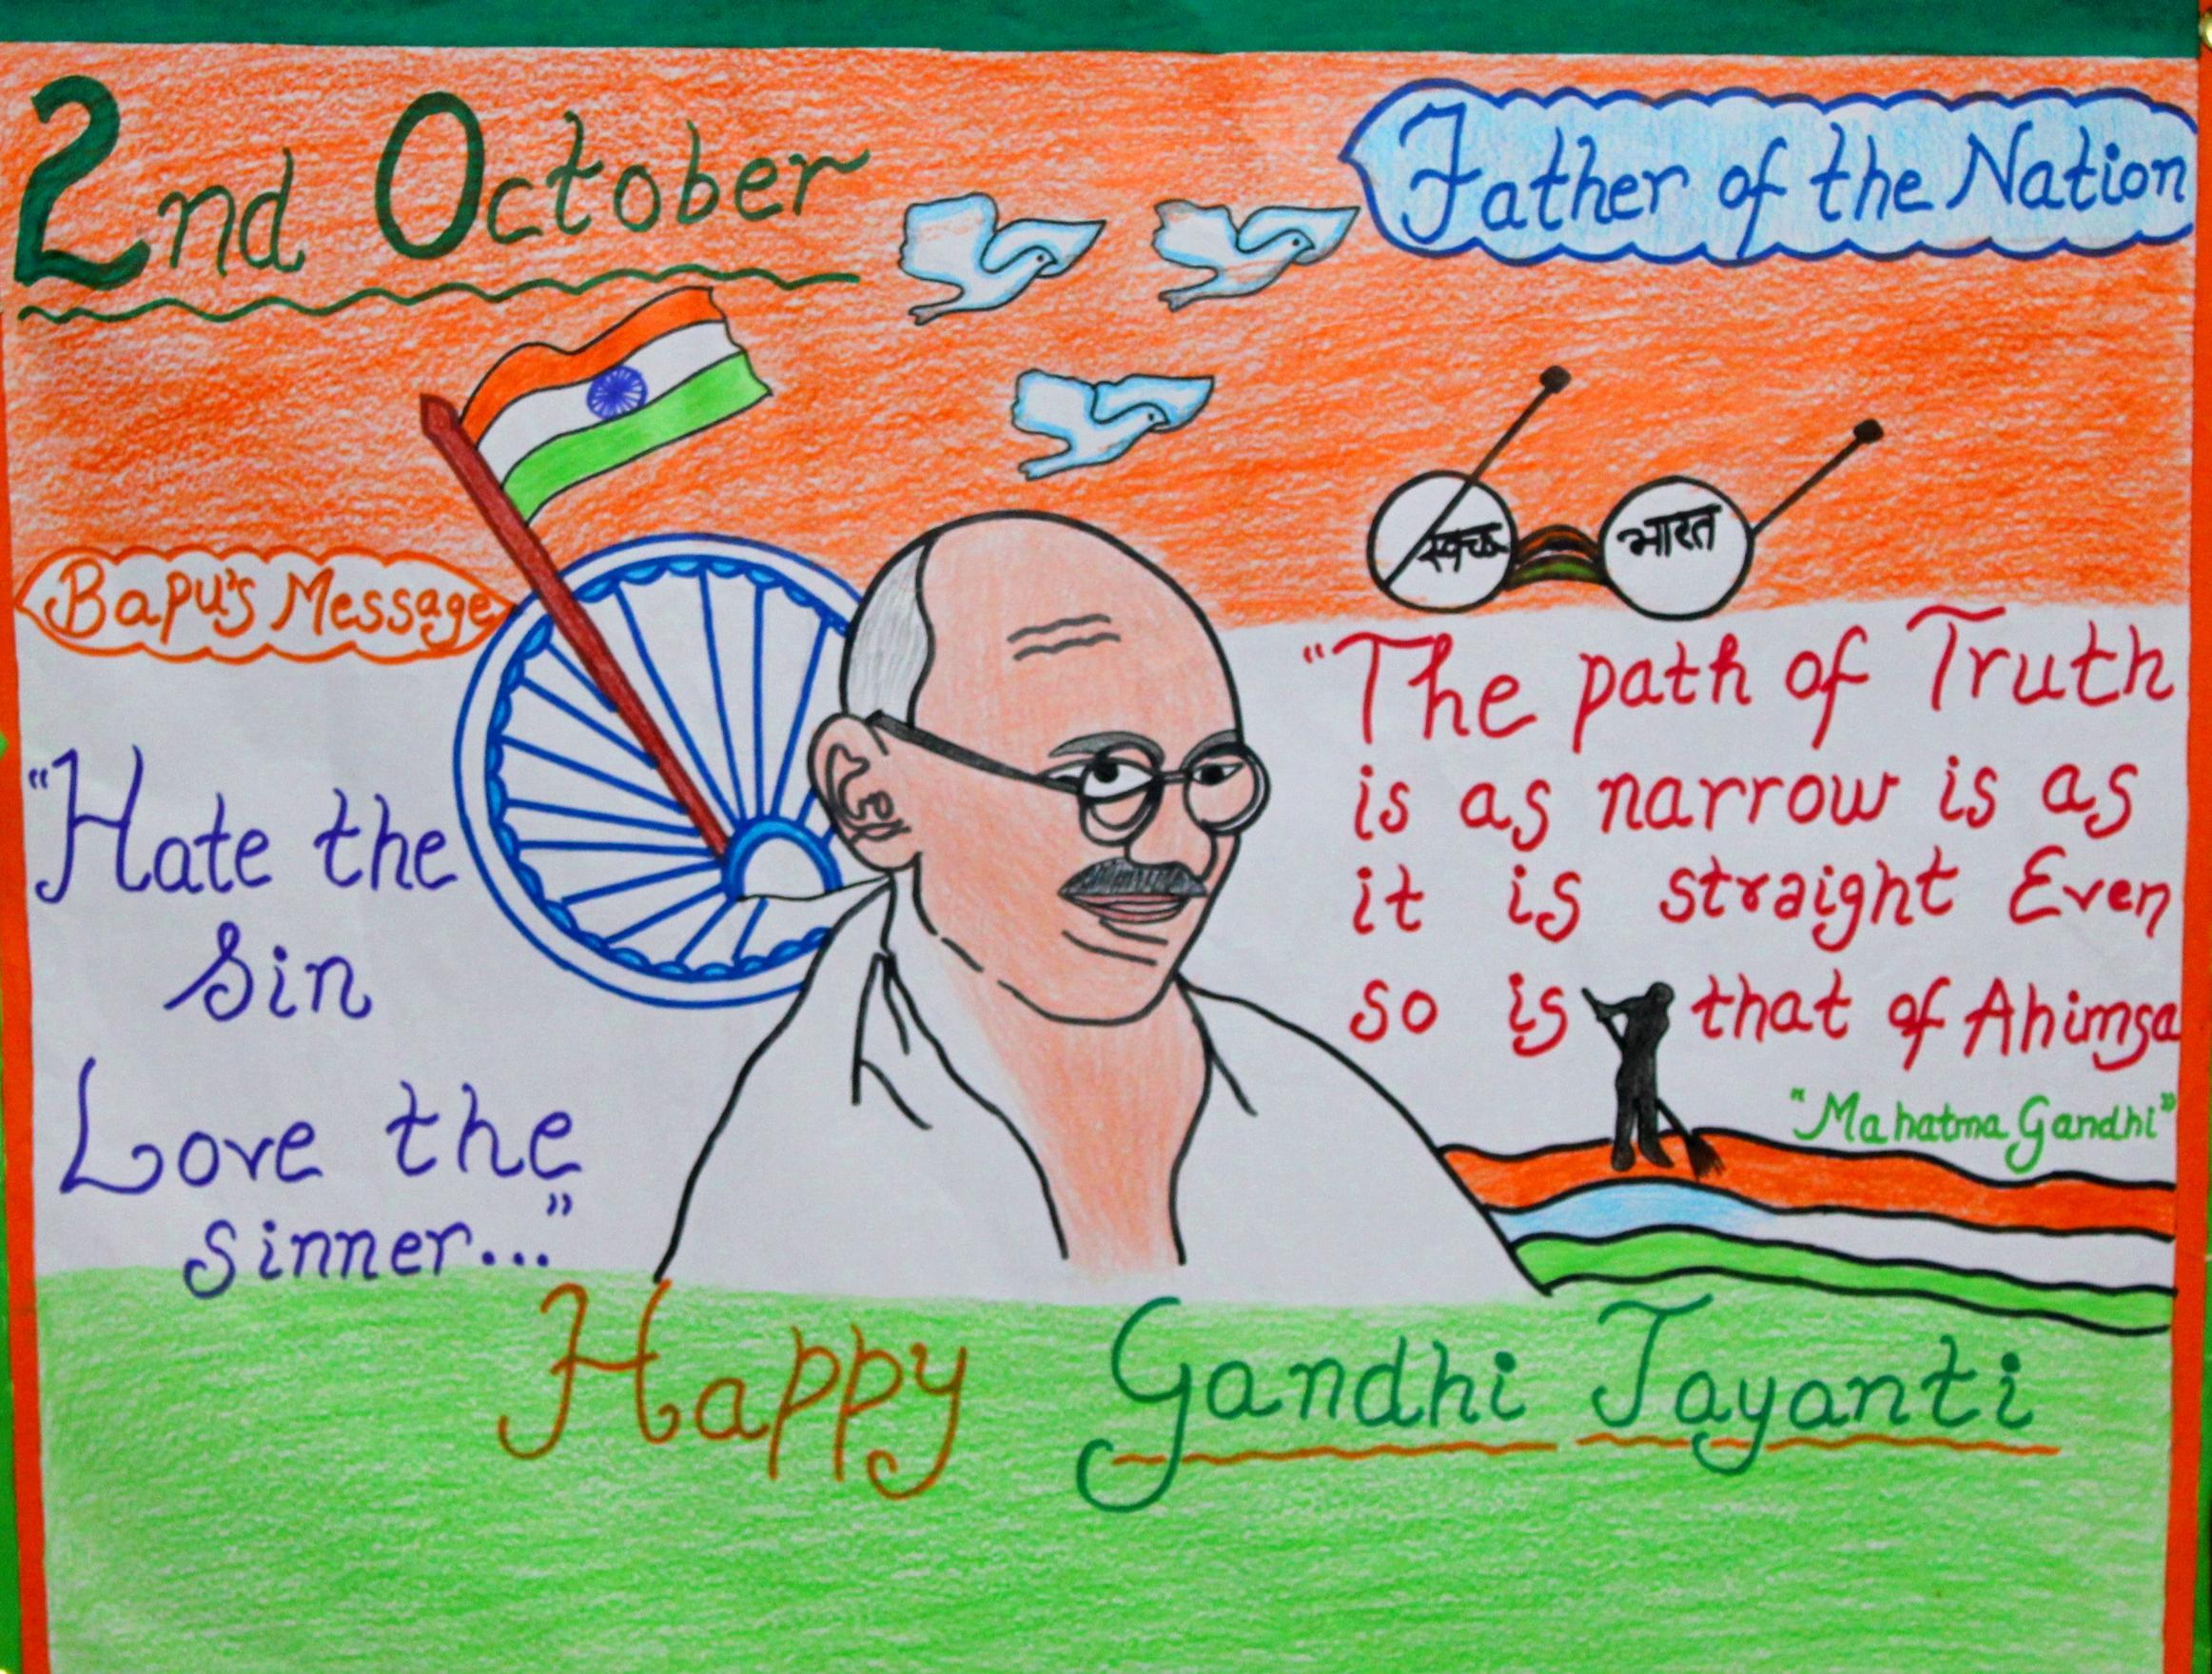 2nd October
Father of the Nation
स्वच्छ भारत
Bapu's Message
"Hate the
Sin
Love the
sinner..."
"The path of Truth
is as narrow is as
it is straight Even
so is that of Ahimsa
"Mahatma Gandhi"
Happy Gandhi Jayanti